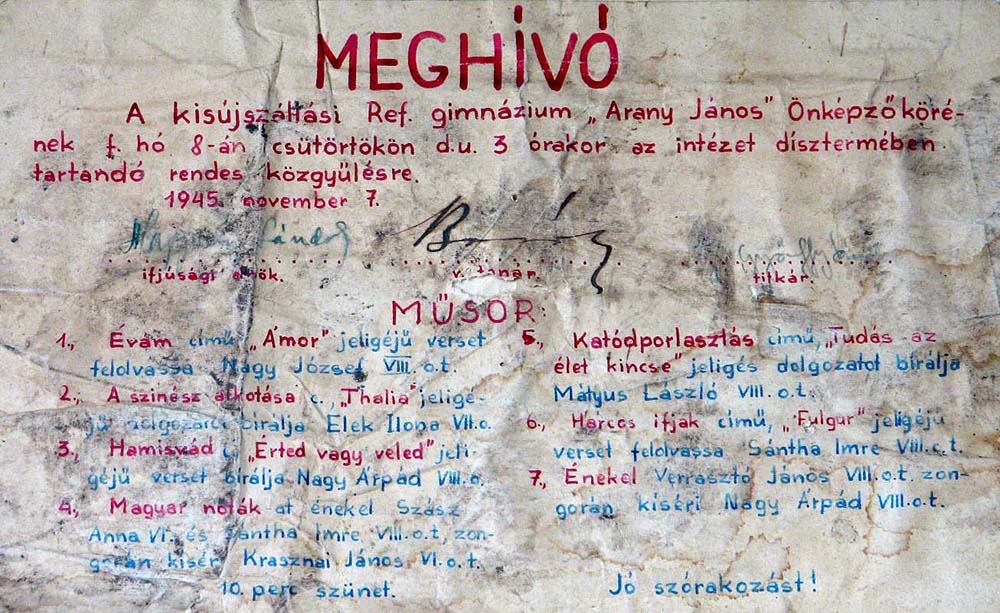 MEGHÍVÓ
A kisújszállási Ref. gimnázium „Arany János" Önképzőköré-
nek f. hó 8-án csütörtökön d.u. 3 órakor az intézet dísztermében
tartandó rendes közgyülésre.
1945. november 7.
Sándor
ifjúsági elnök. v. tanár. titkár.
MŰSOR:
1., Évám című „Ámor" jeligéjű verset
felolvassa Nagy József VIII. o.t.
2., A szinész alkotása c. „Thalia" jeligé-
jű dolgozatot bírálja Elek Ilona VII.o.
3., Hamisvád c. „Érted vagy veled" jeli-
géjű verset bírálja Nagy Árpád VIII.o.
4., Magyar nóták at énekel Szász
Anna VI. és Sántha Imre VIII.o.t, zon-
gorán kisér Krasznai János VI.o.t.
10. perc szünet.
5., Katódporlasztás című, „Tudás az
élet kincse" jeligés dolgozatot bírálja
Mátyus László VIII. o.t.
6., Harcos ifjak című, „Fulgur" jeligéjű
verset felolvassa Sántha Imre VIII.o.t.
7., Énekel Verrasztó János VIII.o.t. zon-
gorán kíséri Nagy Árpád VIII.o.t.
Jó szórakozást!